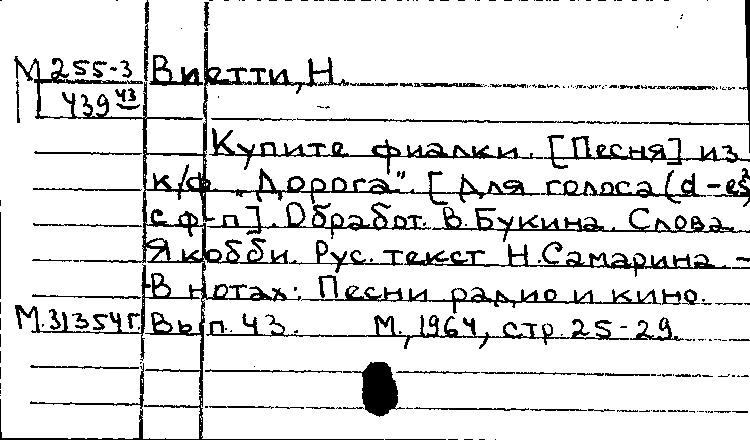 М 255-3 Виетти, Н.
439 43
Купите фиалки. [Песня] из
к/ф „Дорога". [Для голоса (d-es²)
с ф-п]. Обработ. В. Букина. Слова
Якобби. Рус. текст Н. Самарина. -
В нотах: Песни радио и кино.
М.31354г. Вып. 43. М., 1964, стр. 25-29.